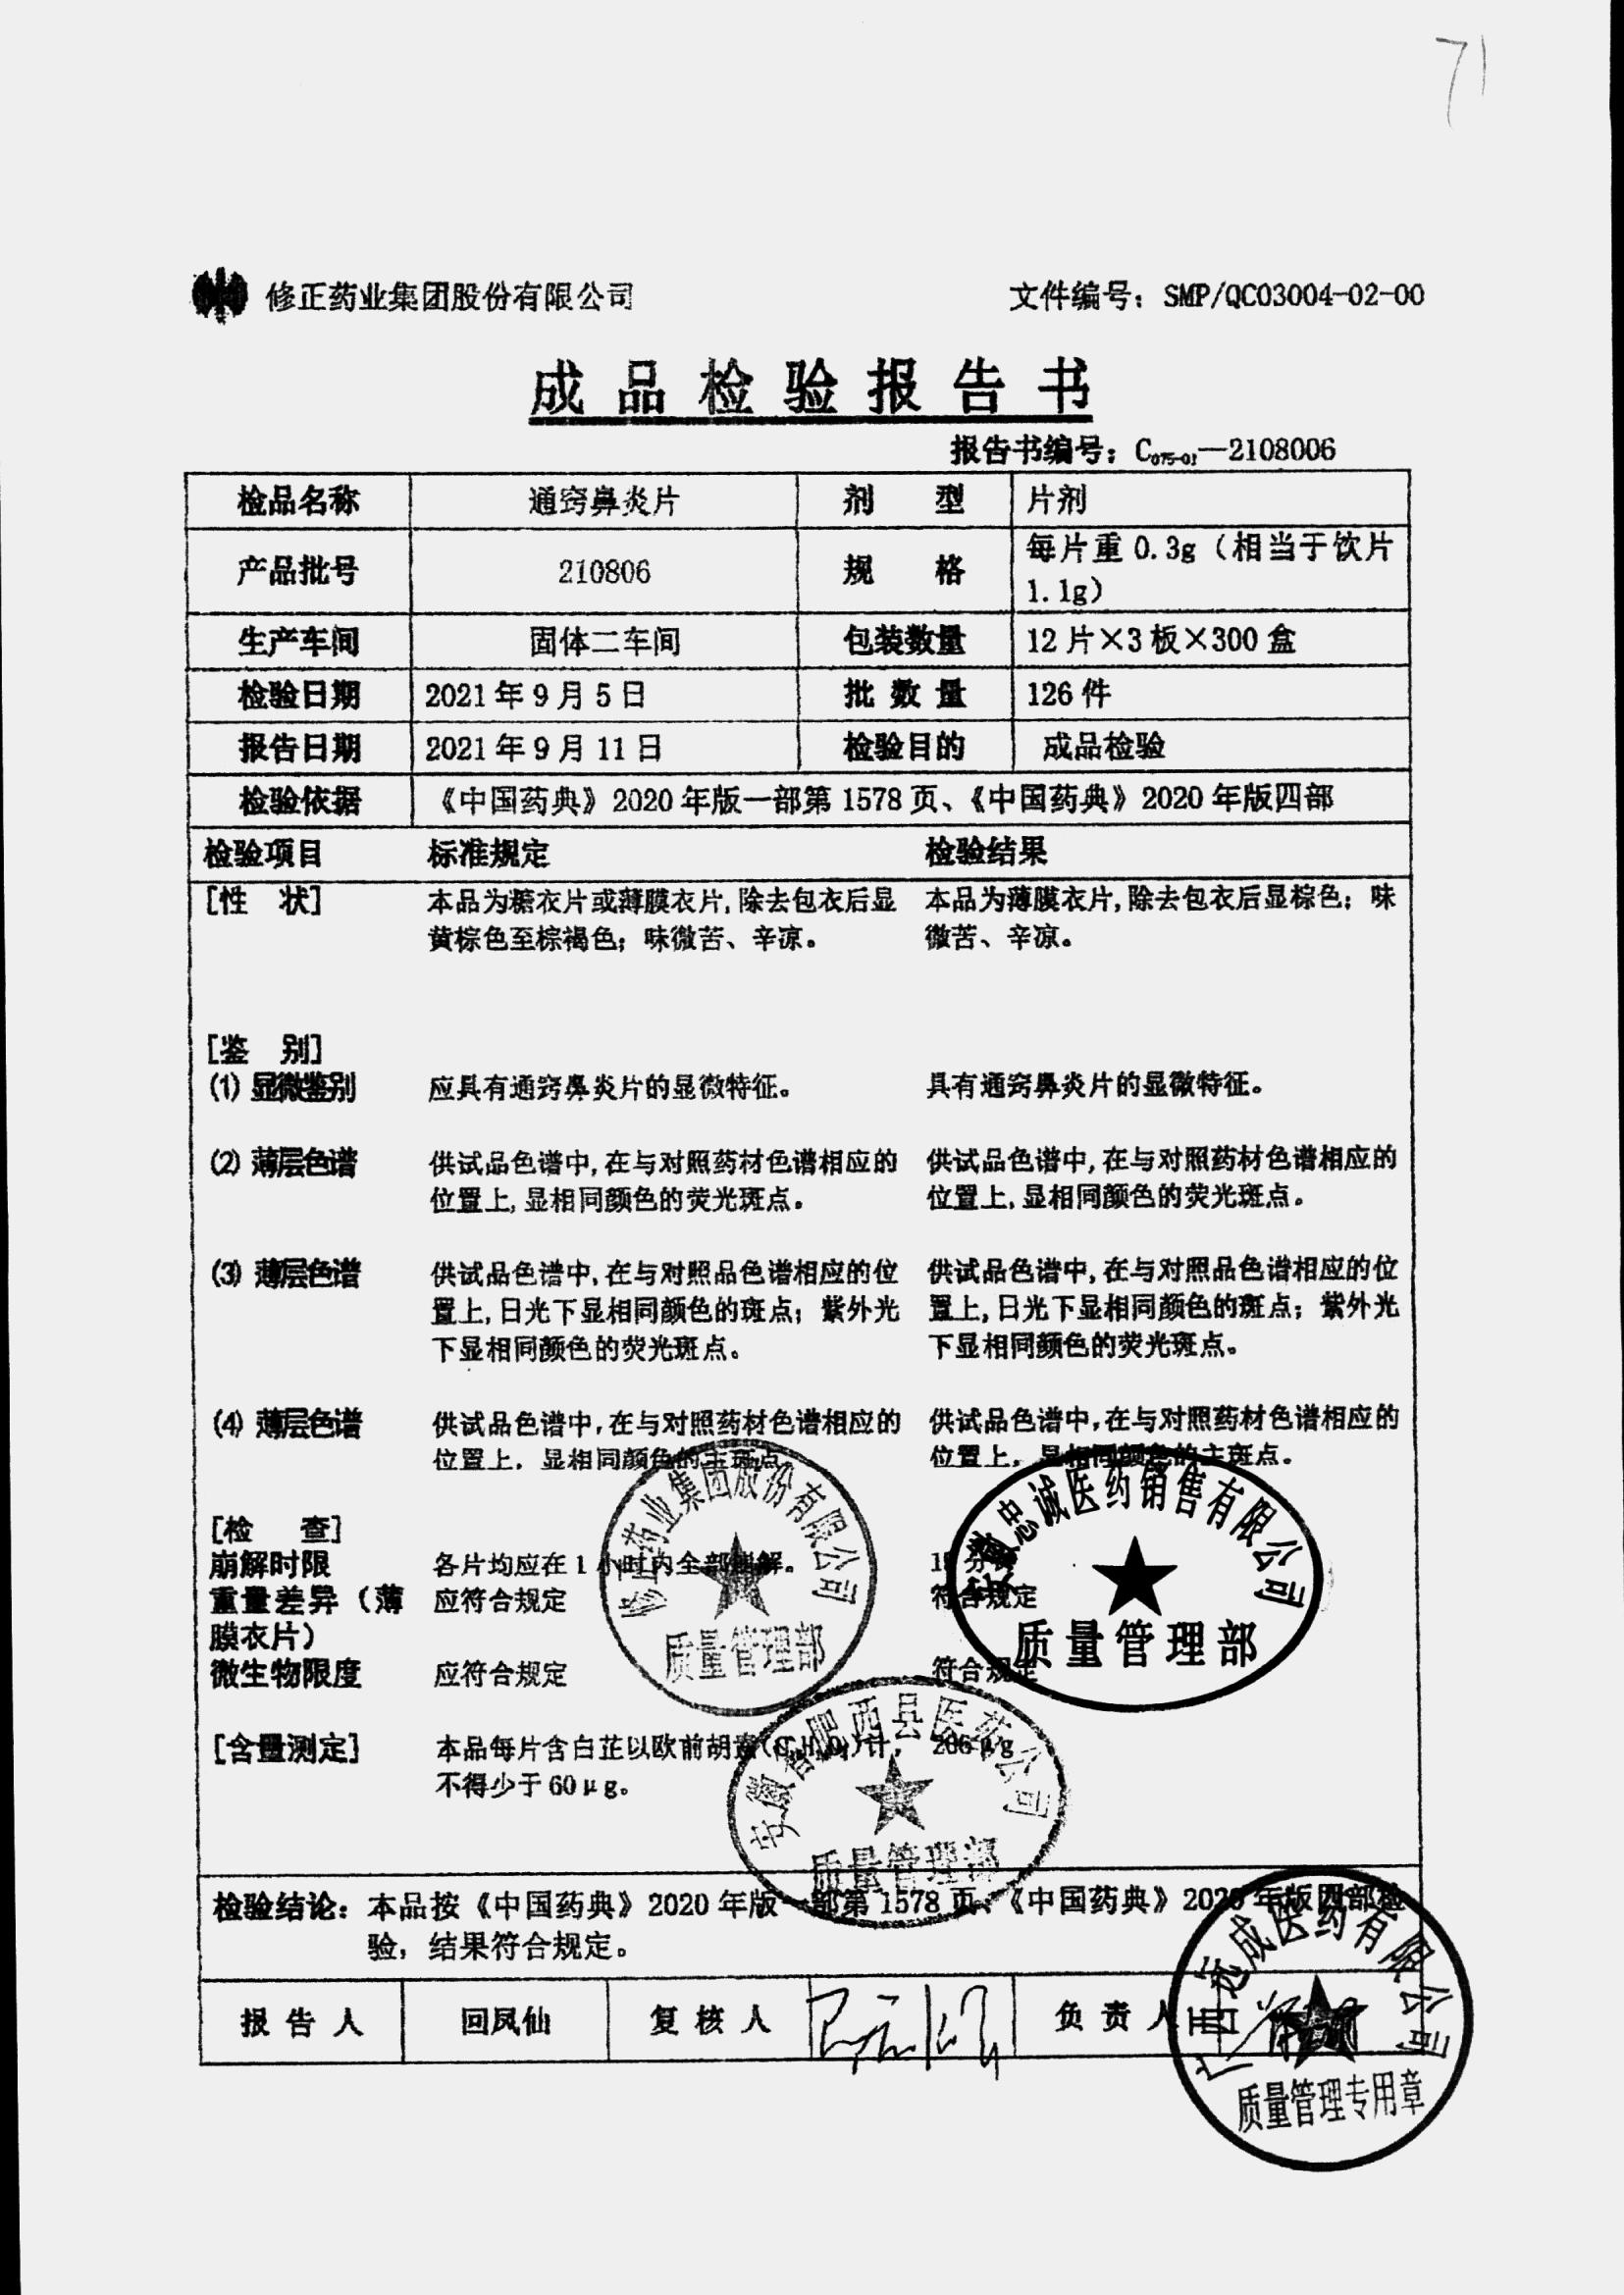 71
修正药业集团股份有限公司 文件编号：SMP/QC03004-02-00
成品检验报告书
报告书编号：C075-01—2108006
检品名称 通窍鼻炎片 剂 型 片剂
产品批号 210806 规 格 每片重 0.3g（相当于饮片
1.1g）
生产车间 固体二车间 包装数量 12 片×3 板×300 盒
检验日期 2021 年 9 月 5 日 批 数 量 126 件
报告日期 2021 年 9 月 11 日 检验目的 成品检验
检验依据 《中国药典》2020 年版一部第 1578 页、《中国药典》2020 年版四部
检验项目 标准规定 检验结果
[性 状] 本品为糖衣片或薄膜衣片,除去包衣后显 本品为薄膜衣片,除去包衣后显棕色；味
黄棕色至棕褐色；味微苦、辛凉。 微苦、辛凉。
[鉴 别]
(1) 显微鉴别 应具有通窍鼻炎片的显微特征。 具有通窍鼻炎片的显微特征。
(2) 薄层色谱 供试品色谱中,在与对照药材色谱相应的 供试品色谱中,在与对照药材色谱相应的
位置上,显相同颜色的荧光斑点。 位置上,显相同颜色的荧光斑点。
(3) 薄层色谱 供试品色谱中,在与对照品色谱相应的位 供试品色谱中,在与对照品色谱相应的位
置上,日光下显相同颜色的斑点；紫外光 置上,日光下显相同颜色的斑点；紫外光
下显相同颜色的荧光斑点。 下显相同颜色的荧光斑点。
(4) 薄层色谱 供试品色谱中,在与对照药材色谱相应的 供试品色谱中,在与对照药材色谱相应的
位置上，显相同颜色的主斑点 位置上，显相同颜色的主斑点。
修正药业集团股份有限公司
质量管理部
安徽忠诚医药销售有限公司
质量管理部
[检 查]
崩解时限 各片均应在 1 小时内全部崩解。
重量差异（薄 应符合规定 符合规定
膜衣片）
微生物限度 应符合规定 符合规定
[含量测定] 本品每片含白芷以欧前胡素 计，
不得少于 60μg。
安徽省肥西县医药公司
质量管理部
检验结论：本品按《中国药典》2020 年版一部第 1578 页、《中国药典》2020 年版四部检
验，结果符合规定。
报 告 人 回凤仙 复 核 人 负 责 人
广西远成医药有限公司
质量管理专用章